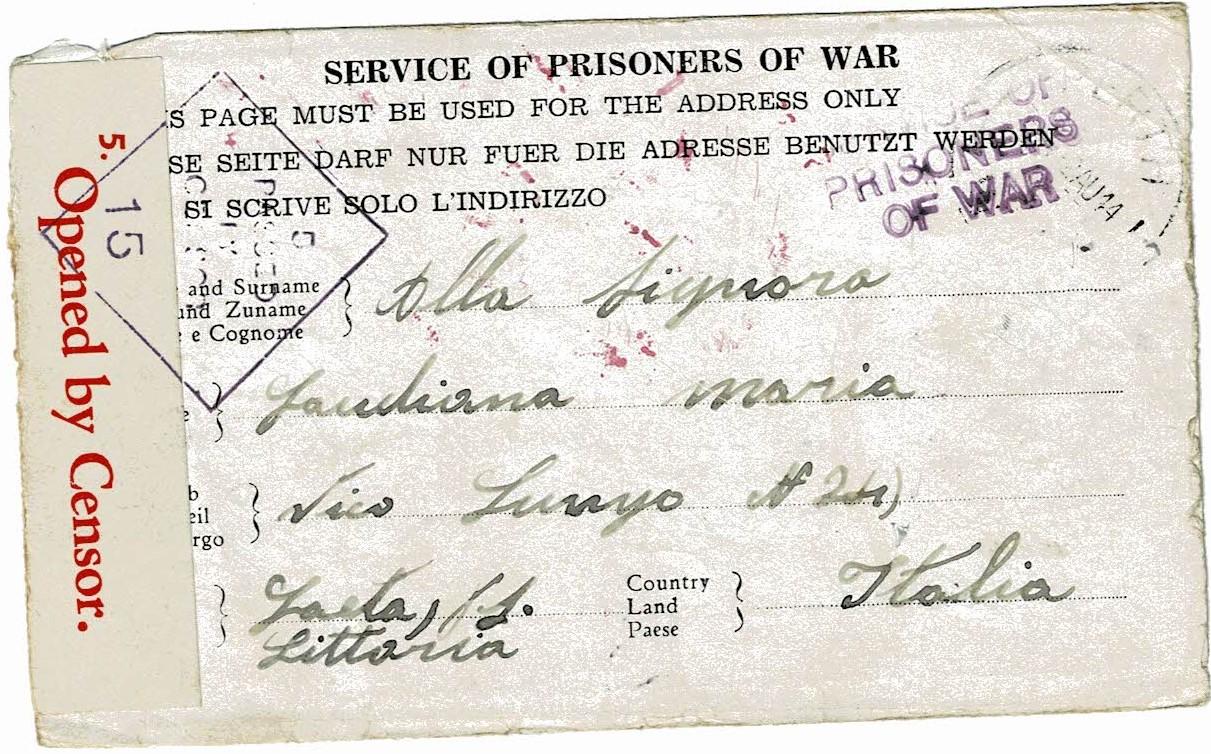 SERVICE OF PRISONERS OF WAR
S PAGE MUST BE USED FOR THE ADDRESS ONLY
SE SEITE DARF NUR FUER DIE ADRESSE BENUTZT WERDEN
SI SCRIVE SOLO L'INDIRIZZO
PRISONERS
OF WAR
5. Opened by Censor.
15
and Surname
und Zuname
e Cognome
Alla Signora
Gaudiana Maria
Vico Lungo N
Gaeta,
Littoria
Country
Land
Paese
Italia